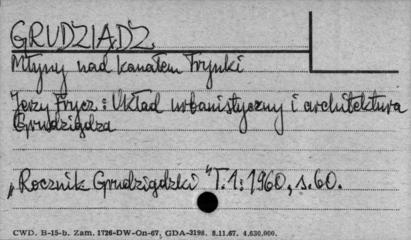 GRUDZIĄDZ
Młyny nad kanałem Trynki
Jerzy Frycz: Układ urbanistyczny i architektura
Grudziądza
„Rocznik Grudziądzki" T.1: 1960, s. 60.
CWD. B-15-b. Zam. 1726-DW-On-67, GDA-3198. 8.11.67. 4.630.000.